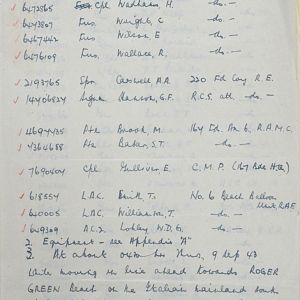 6472865 Cpl Wadhams, H. -do-
6473807 Fus. Wright, C -do-
6467442 Fus. Wilson, E -do-
6476109 Fus. Wallace, R. -do-
2193765 Spr A.R. 220 Fd. Coy R.E.
14406824 G.F. R.C.S. att -do-
Pte Brook, M. 164 Fd. Amb, R.A.M.C.
4364658 Pte Baker, S.T. -do-
7690404 Cpl Gulliver, E. C.M.P. (167 Bde
618554 L.A.C. Smith T. No. 6 Beach Balloon
Unit, RAF
640005 L.A.C. Williams, T. -do-
649309 A.C.2 Lobley W.D.G. -do-
2. Equipment - see Appendix "A"
3. At about hrs Thurs, 9 Sep 43
while moving in line ahead towards ROGER
GREEN Beach on the Italian mainland south